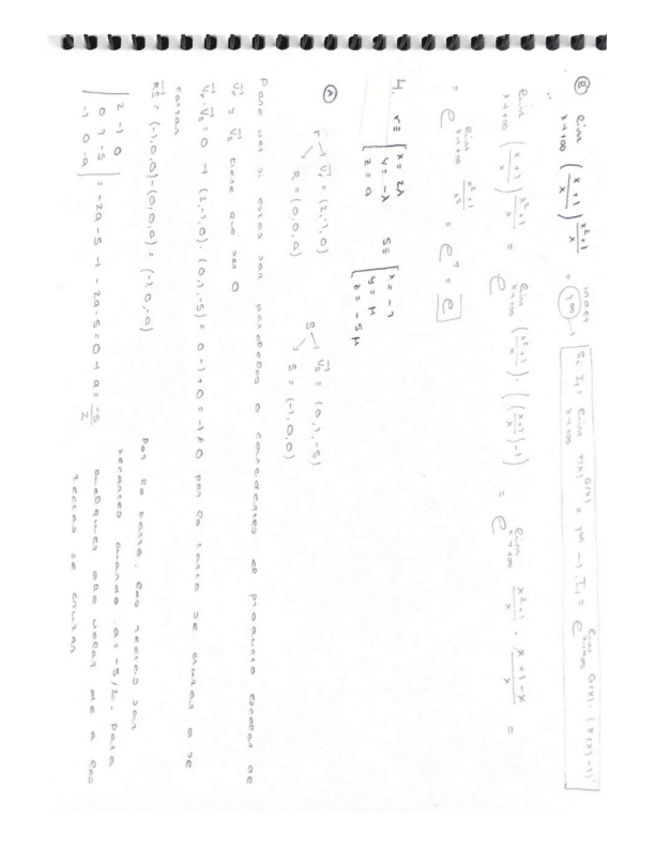 B) lim x→+∞ ((x+1)/x)^((x²+1)/x) = indet (1^∞) → Si It = lim x→+∞ F(x)^G(x) = 1^∞ → It = e^(lim x→+∞ G(x)·(F(x)-1))
lim x→+∞ ((x+1)/x)^((x²+1)/x) = e^(lim x→+∞ ((x²+1)/x)·(((x+1)/x)-1)) = e^(lim x→+∞ (x²+1)/x · (x+1-x)/x) =
= e^(lim x→+∞ (x²+1)/x²) = e^1 = e
4. r≡ { x = 2λ s≡ { x = -1
y = -λ y = μ
z = a z = -5μ
A) r → Vr = (2,-1,0) s → Vs = (0,1,-5)
R = (0,0,a) S = (-1,0,0)
Para ver si estas son paralelas o coincidentes el producto escalar de
Vr y Vs tiene que ser 0
Vr·Vs = 0 → (2,-1,0)·(0,1,-5) = 0-1+0 = -1 ≠ 0 por lo tanto se cruzan o se
cortan
RS = (-1,0,0)-(0,0,a) = (-1,0,-a)
| 2 -1 0 |
| 0 1 -5 | = -2a-5 → -2a-5 = 0 → a = -5/2
| -1 0 -a |
Por lo tanto, las rectas son
secantes cuando a = -5/2. Para
cualquier otro valor de a las
rectas se cruzan